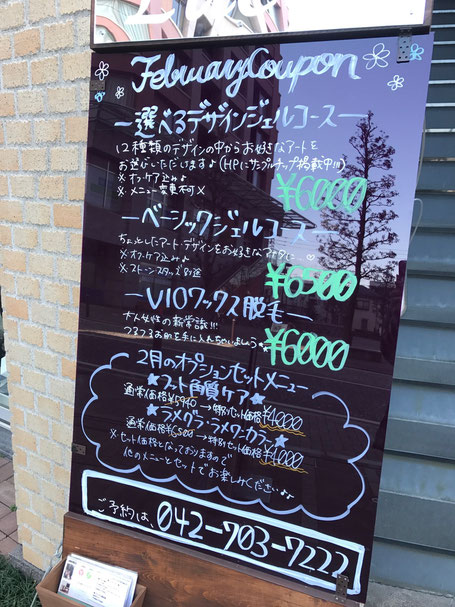 February Coupon
ー選べるデザインジェルコースー
12種類のデザインの中からお好きなアートを
お選びいただいます♪(HPにサンプルチップ掲載中!!!)
※オフ・ケア込み♪
※メニュー変更不可×
¥6000
ーベーシックジェルコースー
ちょっとしたアート・デザインをお好きなアナタに…♡
※オフ・ケア込み♪
※ストーン・スタッズ別途
¥6500
ーVIOワックス脱毛ー
大人女性の新常識!!!
つるつるお肌を手に入れちゃいましょう
¥6000
2月のオプションセットメニュー
★フット角質ケア★
通常価格¥5940→特別セット価格¥4000
★ラメグラ・ラメワンカラー★
通常価格¥6500→特別セット価格¥4000
※セット価格となっておりますので
他のメニューとセットでお楽しみくださいませ♪♪
ご予約は、042-703-7222